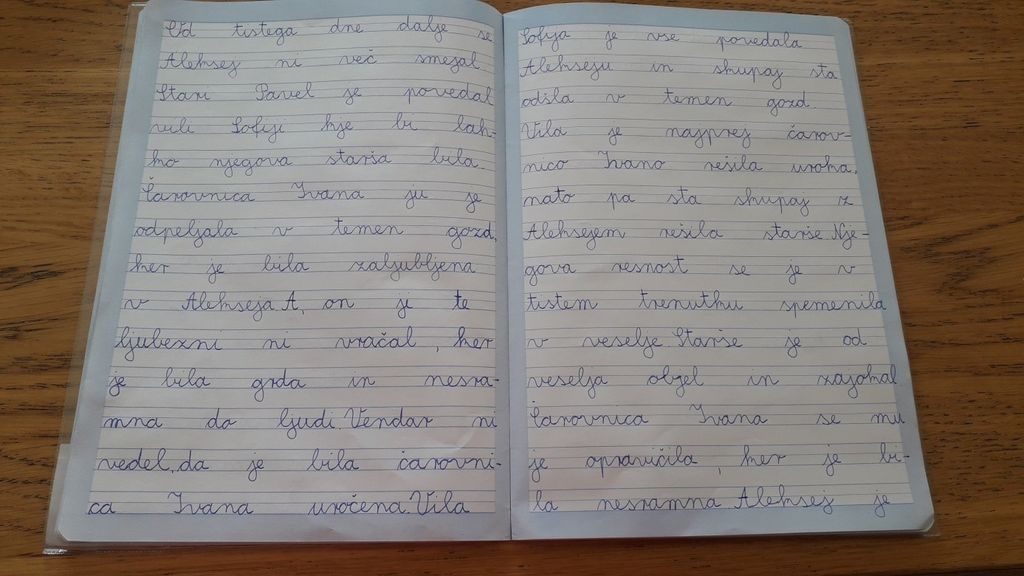 Od tistega dne dalje se
Aleksej ni več smejal.
Stari Pavel je povedal
vili Sofiji kje bi lah-
ko njegova starša bila.
Čarovnica Ivana ju je
odpeljala v temen gozd,
ker je bila zaljubljena
v Alekseja. A, on ji te
ljubezni ni vračal, ker
je bila grda in nesra-
mna do ljudi. Vendar ni
vedel, da je bila čarovni-
ca Ivana uročena. Vila
Sofija je vse povedala
Alekseju in skupaj sta
odšla v temen gozd.
Vila je najprej čarov-
nico Ivano rešila uroka,
nato pa sta skupaj z
Aleksejem rešila starše. Nje-
gova resnost se je v
tistem trenutku spemenila
v veselje. Starše je od
veselja objel in zajokal
Čarovnica Ivana se mu
je opravičila, ker je bi-
la nesramna. Aleksej je